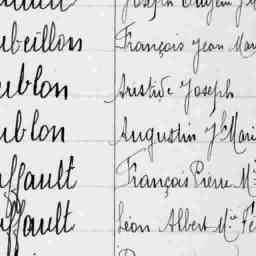 Joseph Eugène
ubeillon François Jean Mari
ublon Aristide Joseph
ublon Augustin Jh Mari
ffault François Pierre M
ffault Léon Albert M